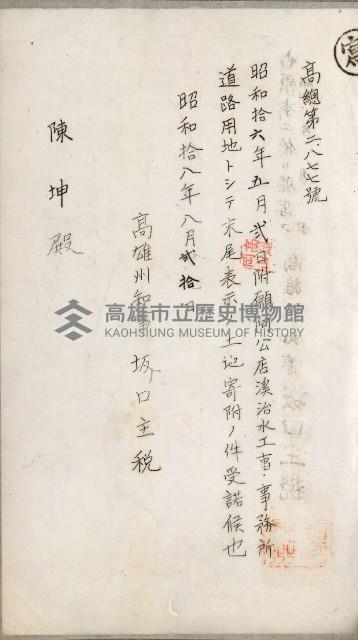 寫
高總第二八七七號
昭和拾六年五月弐日附願阿公店溪治水工事事務所
道路用地トシテ末尾表示ノ土地寄附ノ件受諾候也
昭和拾八年八月弐拾日
高雄州知事 坂口主税
陳坤殿
高雄市立歷史博物館
KAOHSIUNG MUSEUM OF HISTORY